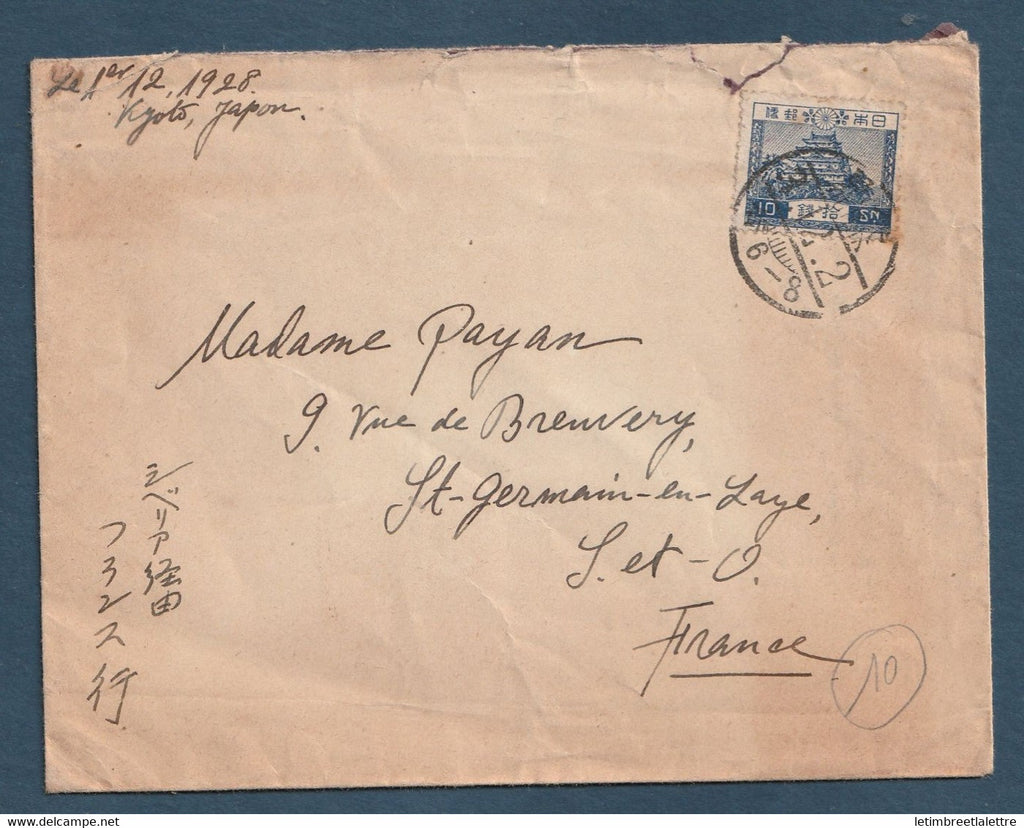 Le 1er 12, 1928.
Kyoto, Japon.
日本郵便
拾銭
10 SN
6-8
Madame Payan
9. rue de Breuvery,
St-Germain-en-Laye,
S. et-O.
France
シベリア経由
フランス行
10
www.delcampe.net
letimbreetlalettre